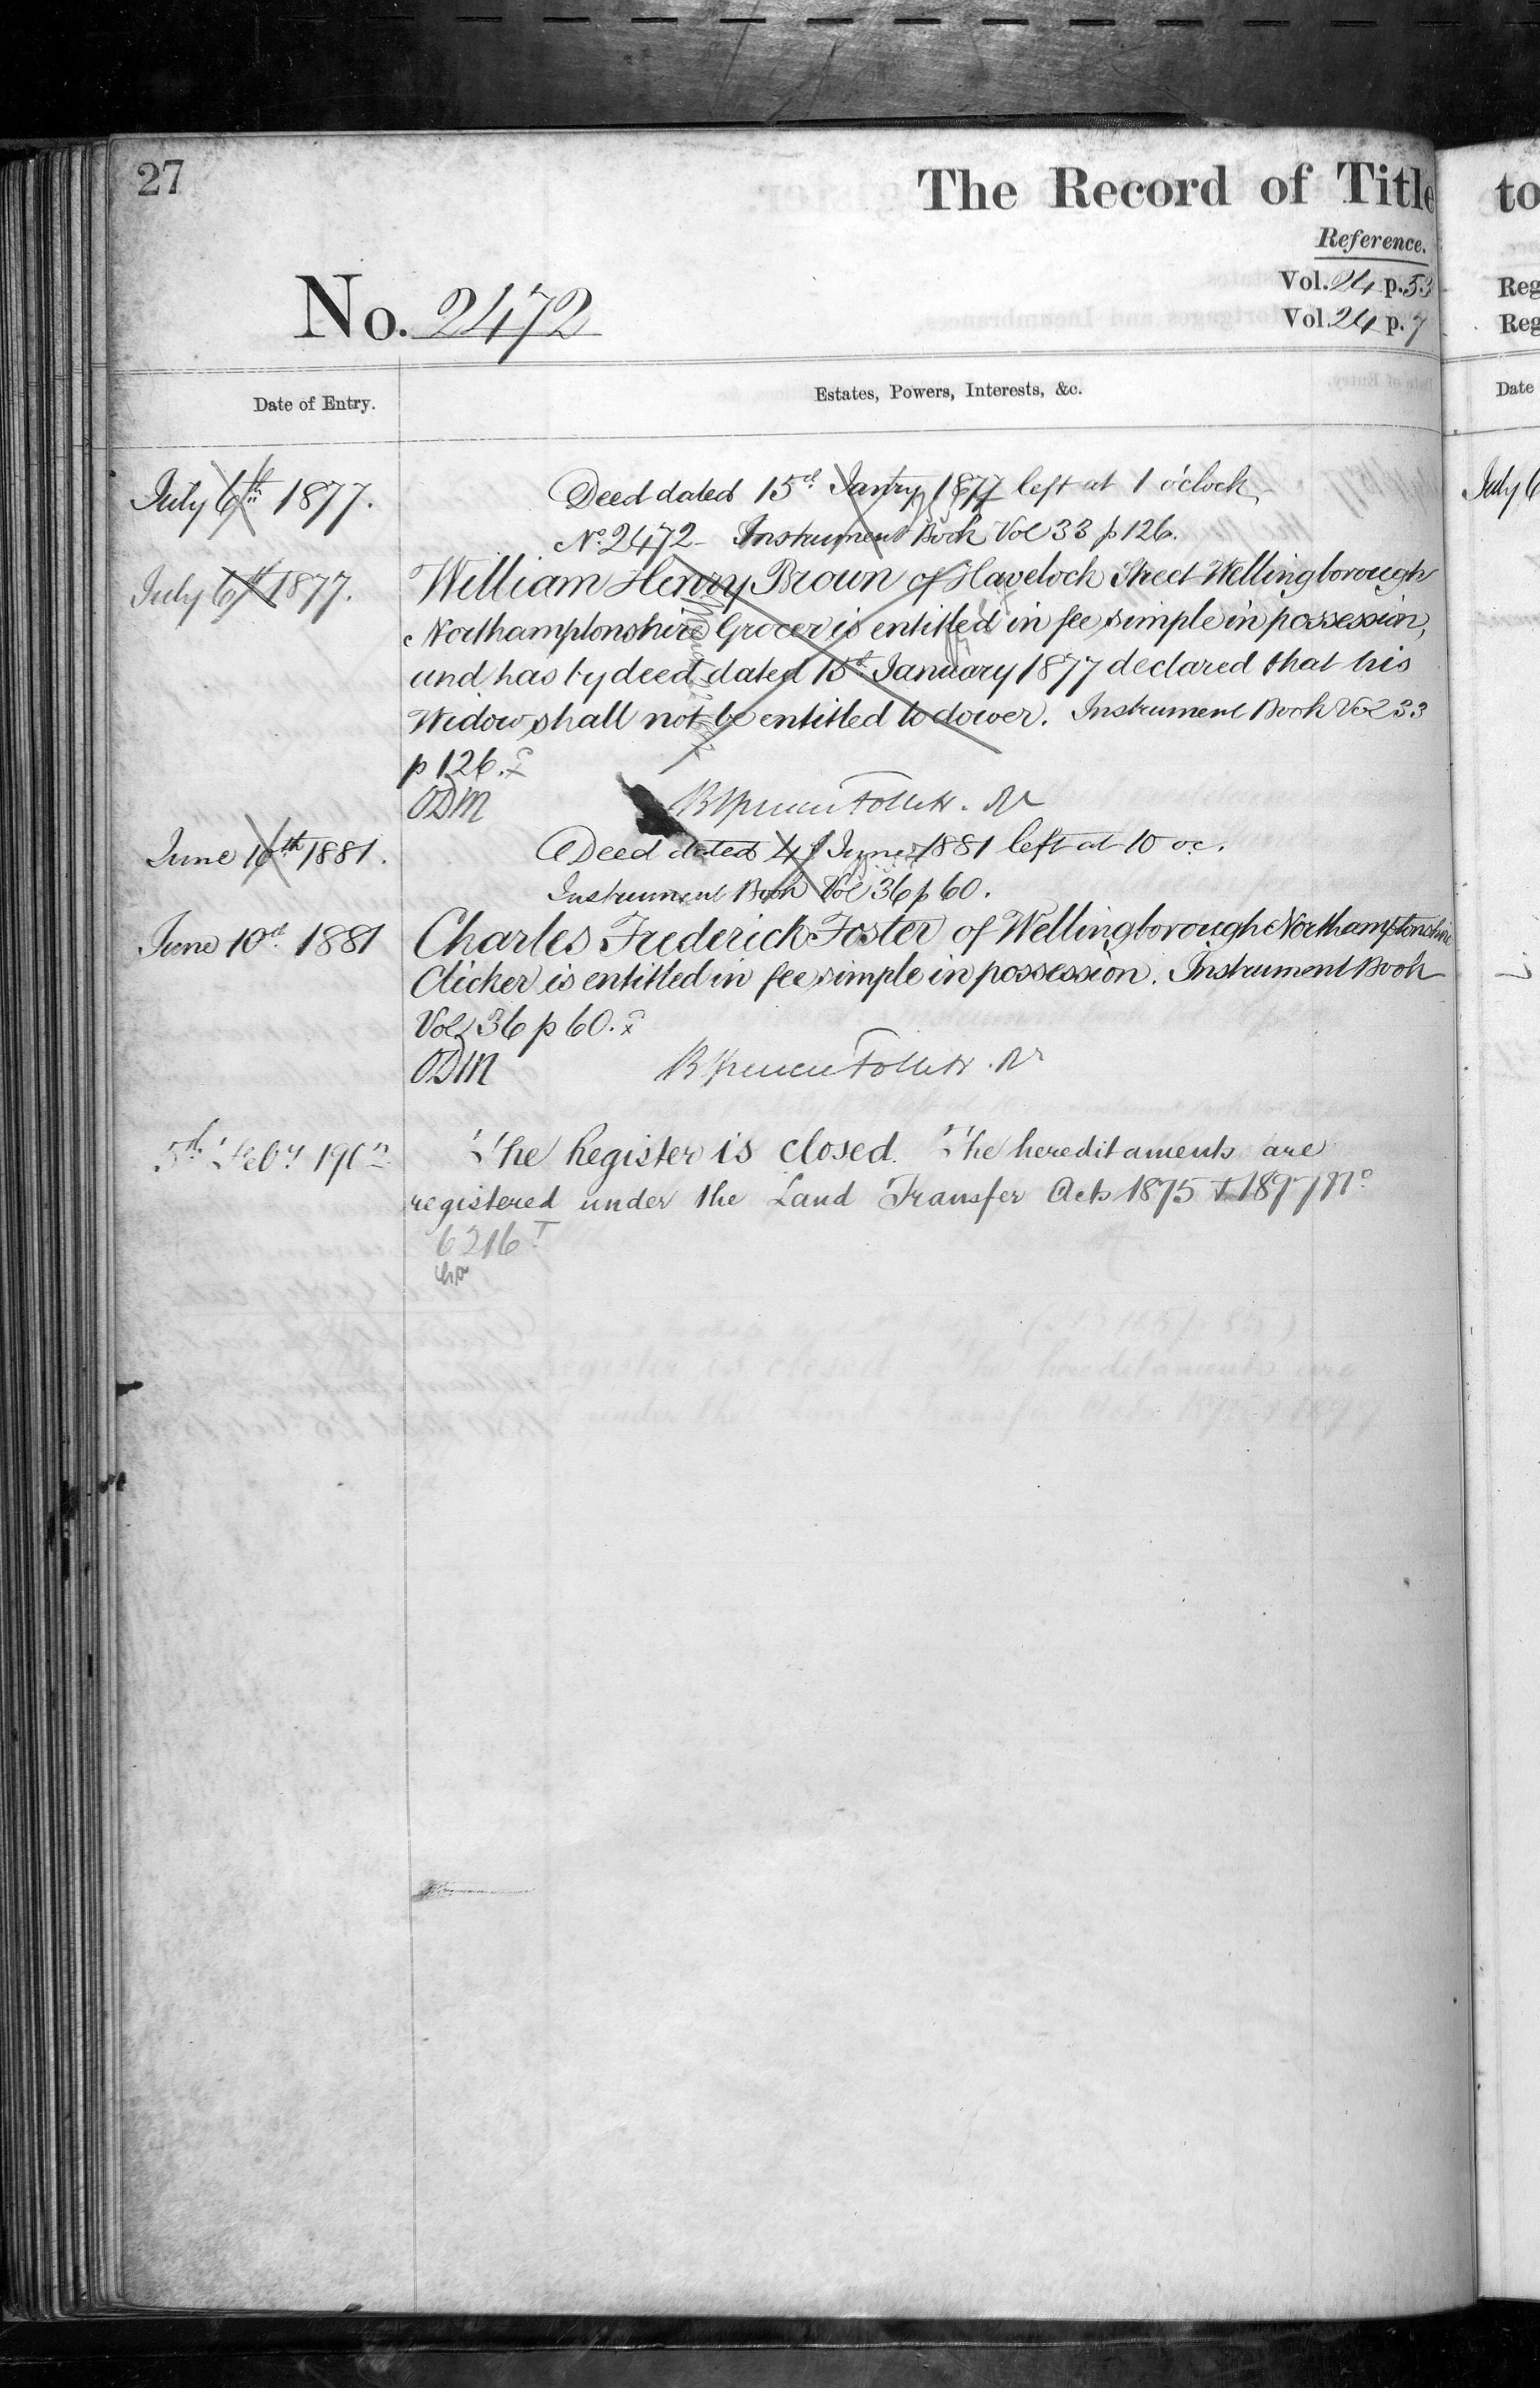 27
The Record of Title
Reference.
No. 2472
Vol. 24 p. 53
Vol. 24 p. 7
Date of Entry.
Estates, Powers, Interests, &c.
July 6th 1877. Deed dated 15th Janry 1877 left at 1 o'clock,
No 2472 Instrument Book Vol 33 p 126.
July 6th 1877. William Henry Brown of Havelock Street Wellingborough
Northamptonshire Grocer is entitled in fee simple in possession,
and has by deed dated 15th January 1877 declared that his
Widow shall not be entitled to dower. Instrument Book Vol 33
p 126.
ODM
June 10th 1881. Deed dated 4th June 1881 left at 10 oc.
Instrument Book Vol 36 p 60.
June 10th 1881 Charles Frederick Foster of Wellingborough Northamptonshire
Clicker is entitled in fee simple in possession. Instrument Book
Vol 36 p 60.
ODM
5th Feby 1902 The Register is closed. The hereditaments are
registered under the Land Transfer Acts 1875 & 1897 No
6216 T
to
Reg
Reg
Date
July 6